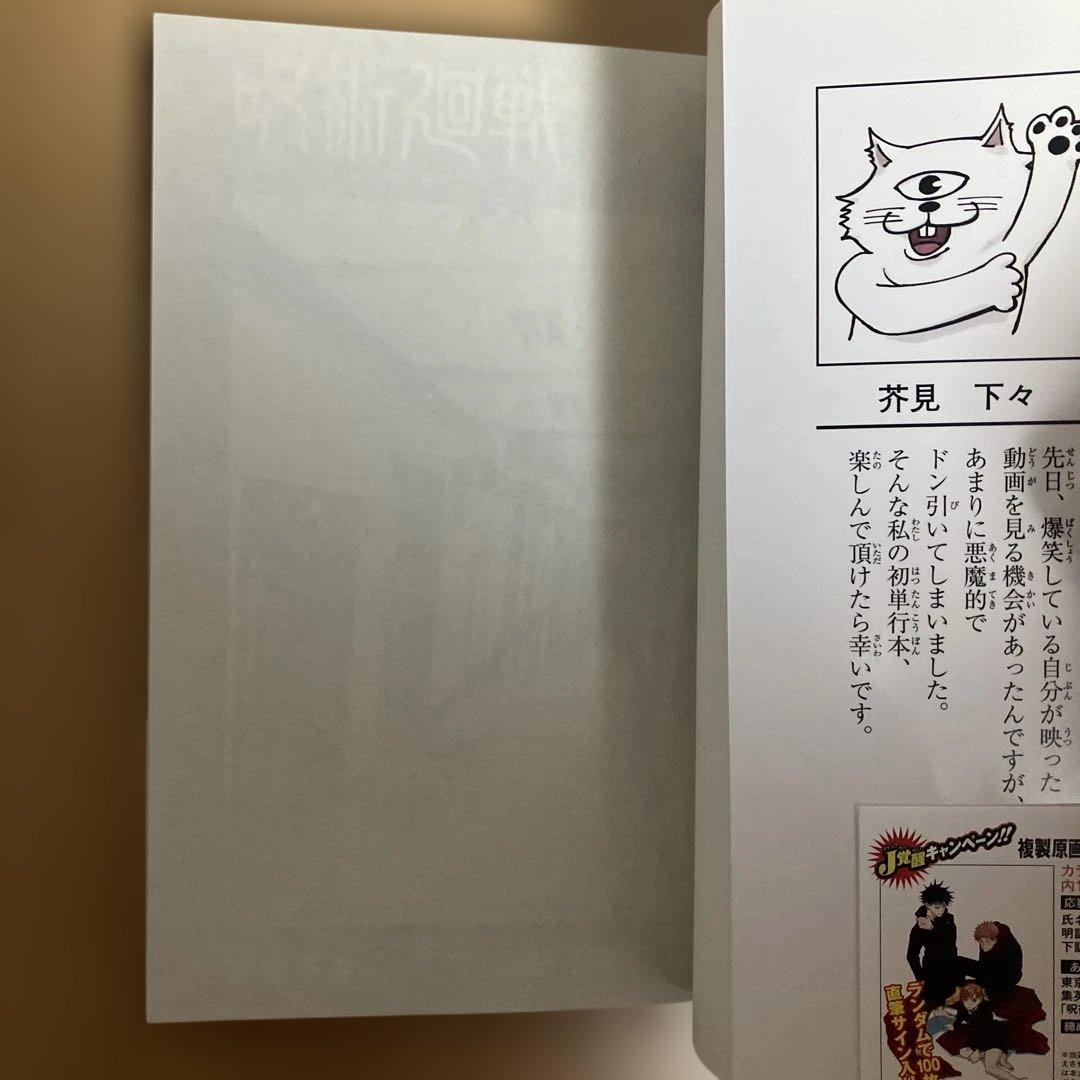 呪術廻戦
芥見 下々
先日、爆笑している自分が映った
動画を見る機会があったんですが、
あまりに悪魔的で
ドン引いてしまいました。
そんな私の初単行本、
楽しんで頂けたら幸いです。
J覚醒キャンペーン!!
複製原画
ランダムで100
直筆サイン入
カラ
内
応募
氏名
明記
下記
あ
東京
集英
「呪
締め